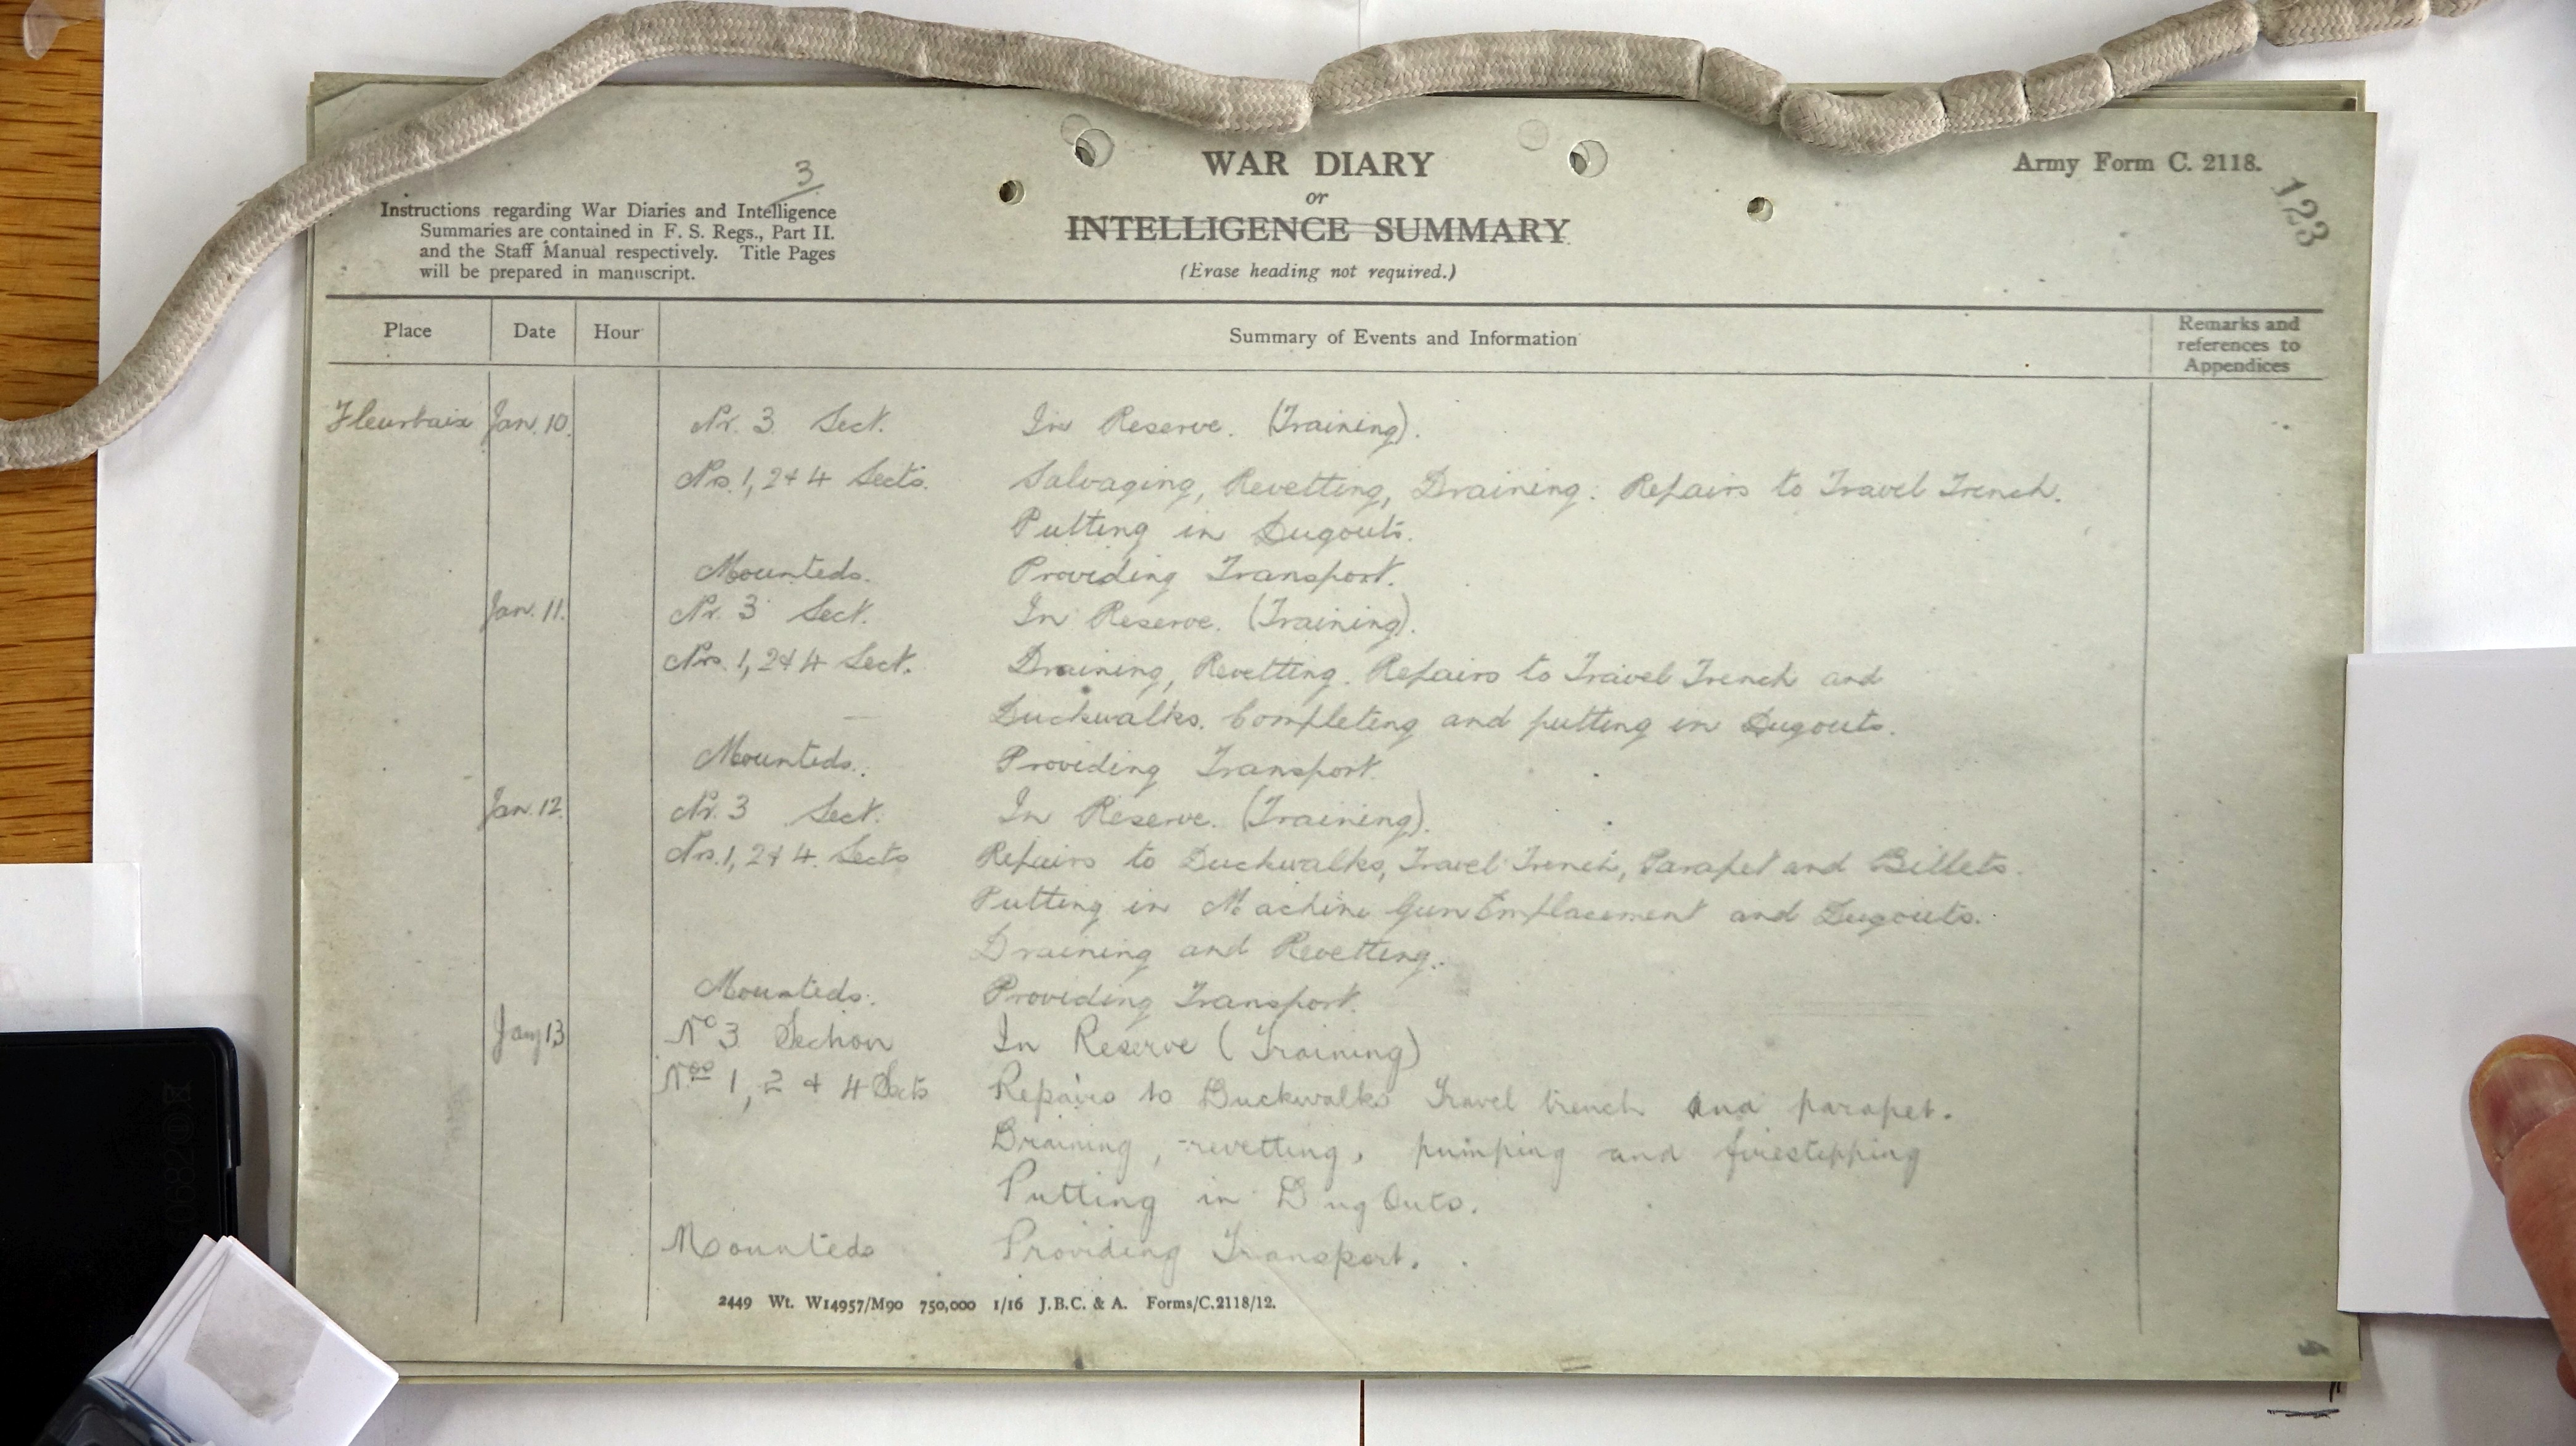 3
Instructions regarding War Diaries and Intelligence
Summaries are contained in F. S. Regs., Part II.
and the Staff Manual respectively. Title Pages
will be prepared in manuscript.
WAR DIARY
or
INTELLIGENCE SUMMARY
(Erase heading not required.)
Army Form C. 2118.
123
Place Date Hour Summary of Events and Information Remarks and references to Appendices
Fleurbaix Jan. 10. Nr. 3 Sect. In Reserve. (Training).
Nrs. 1, 2 & 4 Sects. Salvaging, Revetting, Draining. Repairs to Travel Trench.
Putting in Dugouts.
Mounteds. Providing Transport.
Jan. 11. Nr. 3 Sect. In Reserve. (Training).
Nrs. 1, 2 & 4 Sect. Draining, Revetting. Repairs to Travel Trench and
Duckwalks. Completing and putting in Dugouts.
Mounteds. Providing Transport.
Jan. 12. Nr. 3 Sect. In Reserve. (Training).
Nrs. 1, 2 & 4. Sects Repairs to Duckwalks, Travel Trench, Parapet and Billets.
Putting in Machine Gun Emplacement and Dugouts.
Draining and Revetting.
Mounteds. Providing Transport.
Jany 13 No 3 Section In Reserve (Training)
Nos 1, 2 & 4 Sects Repairs to Duckwalks Travel trench and parapet.
Draining, revetting, pumping and firestepping
Putting in Dug Outs.
Mounteds Providing Transport.
2449 Wt. W14957/M90 750,000 1/16 J.B.C. & A. Forms/C.2118/12.